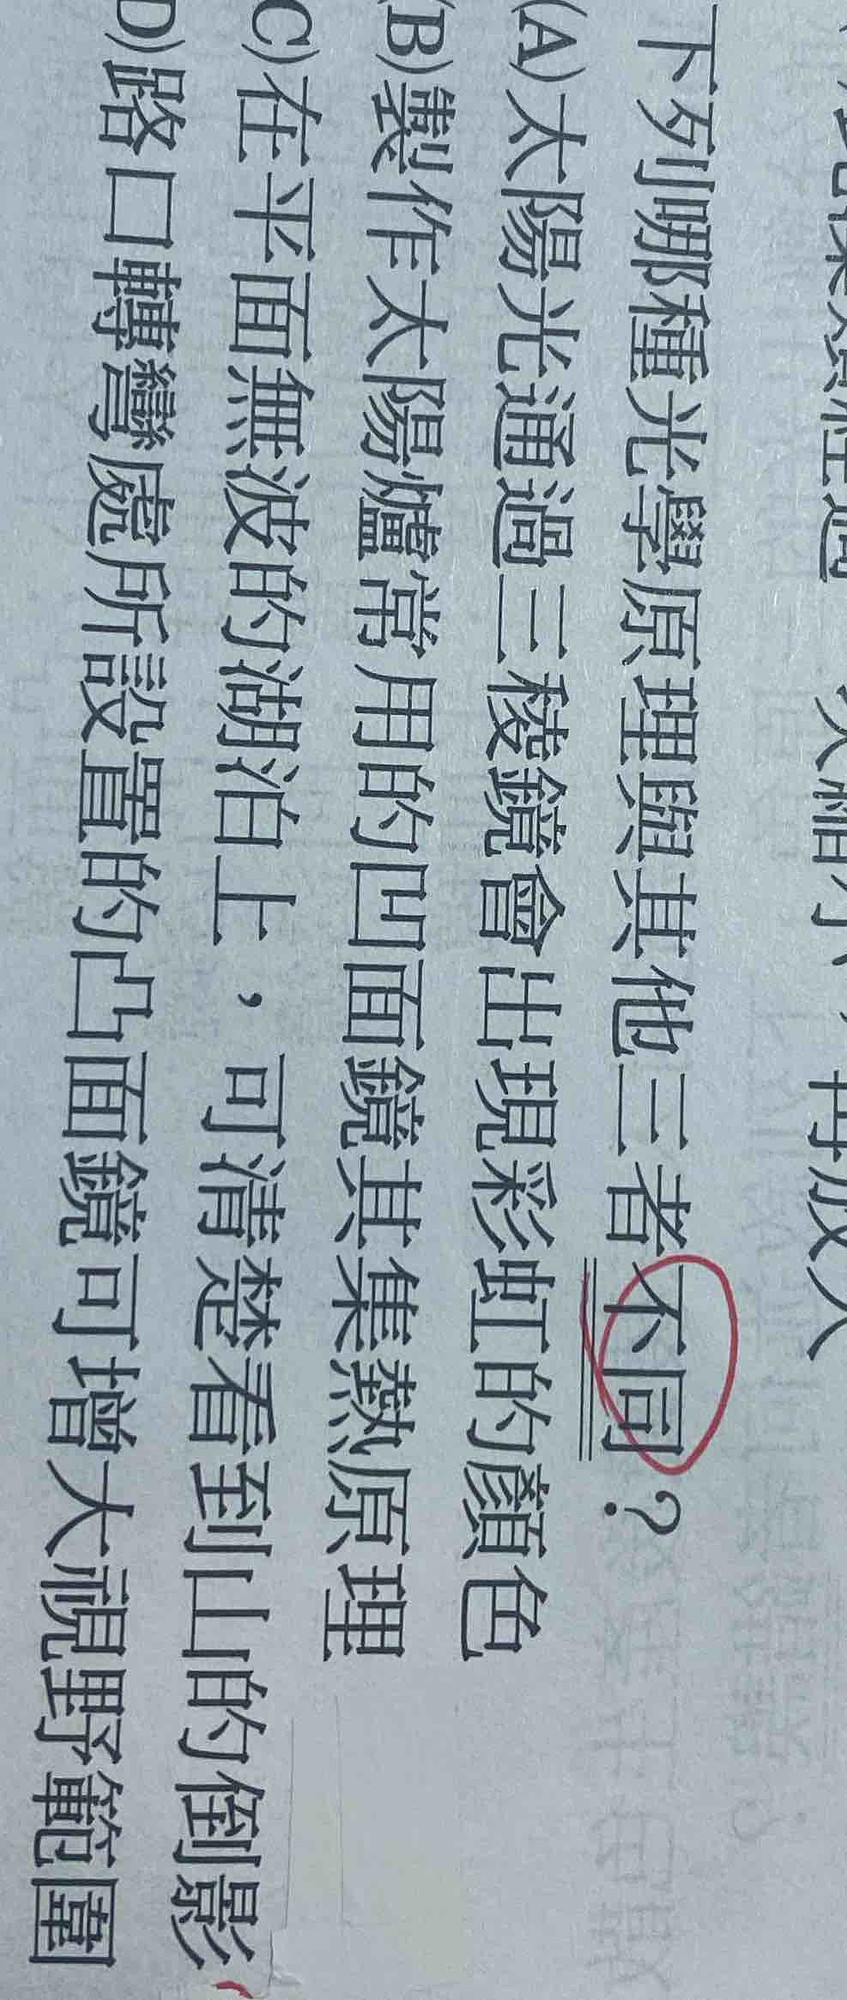 下列哪種光學原理與其他三者不同?
(A)太陽光通過三稜鏡會出現彩虹的顏色
(B)製作太陽爐常用的凹面鏡其集熱原理
C)在平面無波的湖泊上,可清楚看到山的倒影
D)路口轉彎處所設置的凸面鏡可增大視野範圍